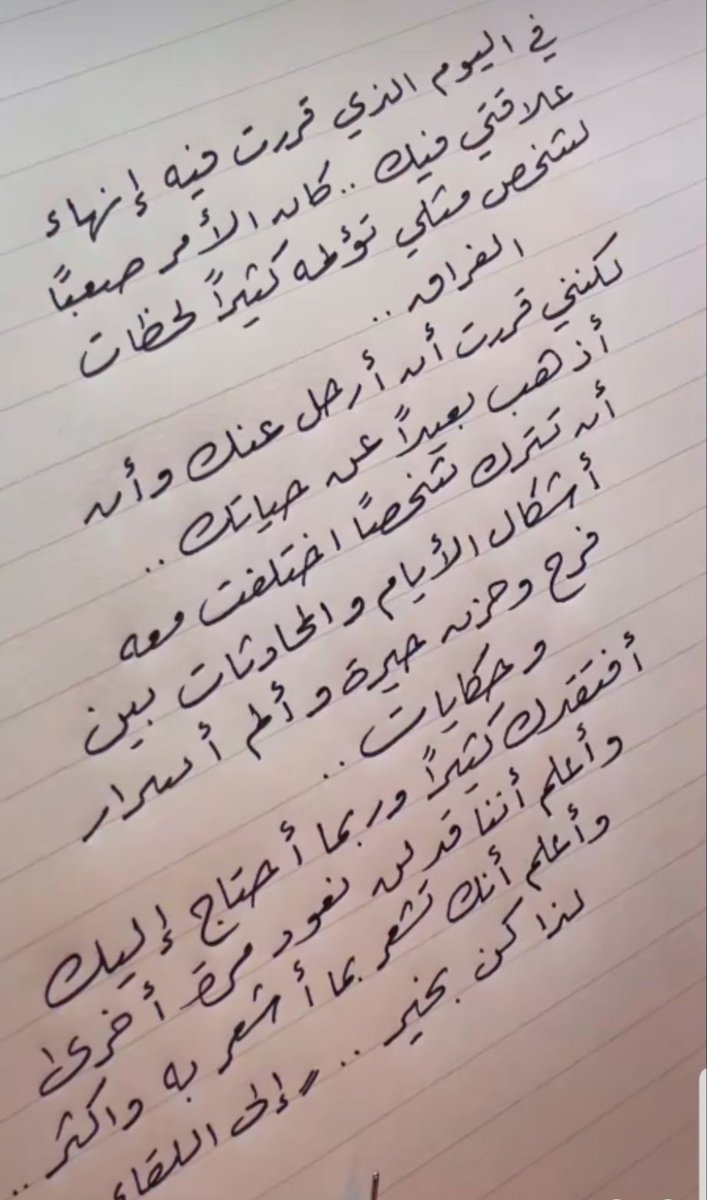 في اليوم الذي قررت فيه إنهاء
علاقتي فيك .. كان الأمر صعبًا
لشخص مثلي تؤلمه كثيرًا لحظات
الفراق ..
لكنني قررت أن أرحل عنك وأن
أذهب بعيدًا عن حياتك ..
أن تترك شخصًا اختلفت معه
أشكال الأيام والمحادثات بين
فرح وحزن حيرة وألم أسرار
وحكايات ..
أفتقدك كثيرًا وربما أحتاج إليك
وأعلم أننا قد لن نعود مرة أخرى
وأعلم أنك تشعر بما أشعر به واكثر ..
لذا كن بخير .. وإلى اللقاء